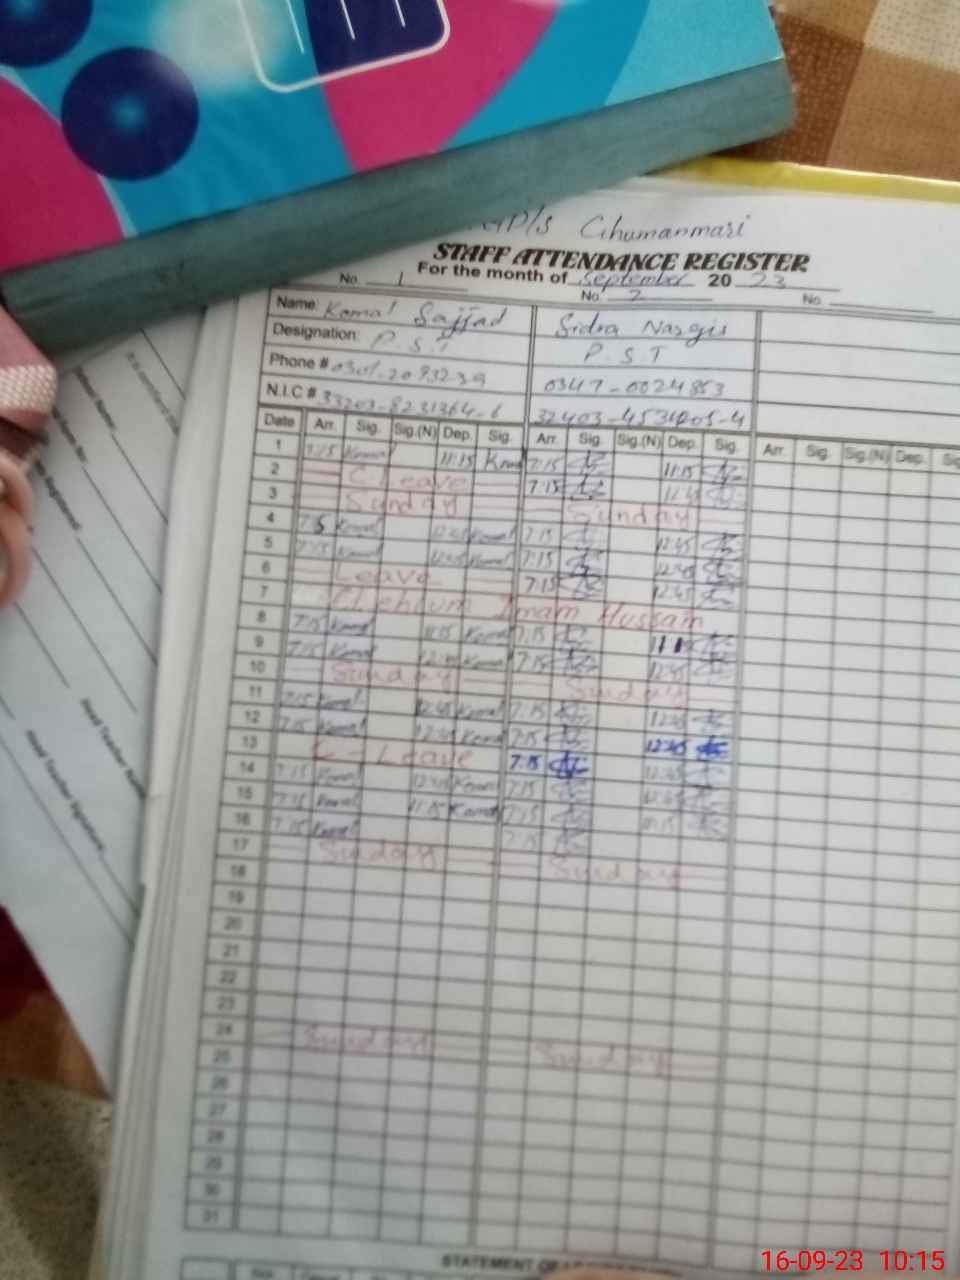 GP/S Ghumanmari
STAFF ATTENDANCE REGISTER
For the month of September 2023
No. 1 No. 2 No.
Name: Komal Sajjad Sidra Nargis
Designation: P.S.T P.S.T
Phone # 0347-0024853
N.I.C #
Date Arr. Sig. Sig.(N) Dep. Sig. Arr. Sig. Sig.(N) Dep. Sig. Arr. Sig. Sig.(N) Dep. Sig
1 7:15 Komal 11:15 7:15 11:15
2 C.Leave 7:15
3 Sunday Sunday
4 Komal 12:45 Komal 7:15 12:45
5 7:15 Komal 12:45 Komal 7:15 12:45
6 Leave 7:15 12:45
7 Chehlum Imam Hussain
8 7:15 Komal 11:15 Komal 7:15
9 7:15 Komal 12:45 Komal 7:15 12:45
10 Sunday Sunday
11 7:15 Komal 12:45 Komal 7:15 12:45
12 7:15 Komal 12:45 Komal 7:15 12:45
13 C-Leave 7:15 12:45
14 7:15 Komal 12:45 Komal 7:15 12:45
15 7:15 Komal 11:15 Komal 7:15 11:15
16 7:15 Komal 7:15
17 Sunday Sunday
18
19
20
21
22
23
24 Sunday Sunday
25
26
27
28
29
30
31
STATEMENT OF
16-09-23 10:15